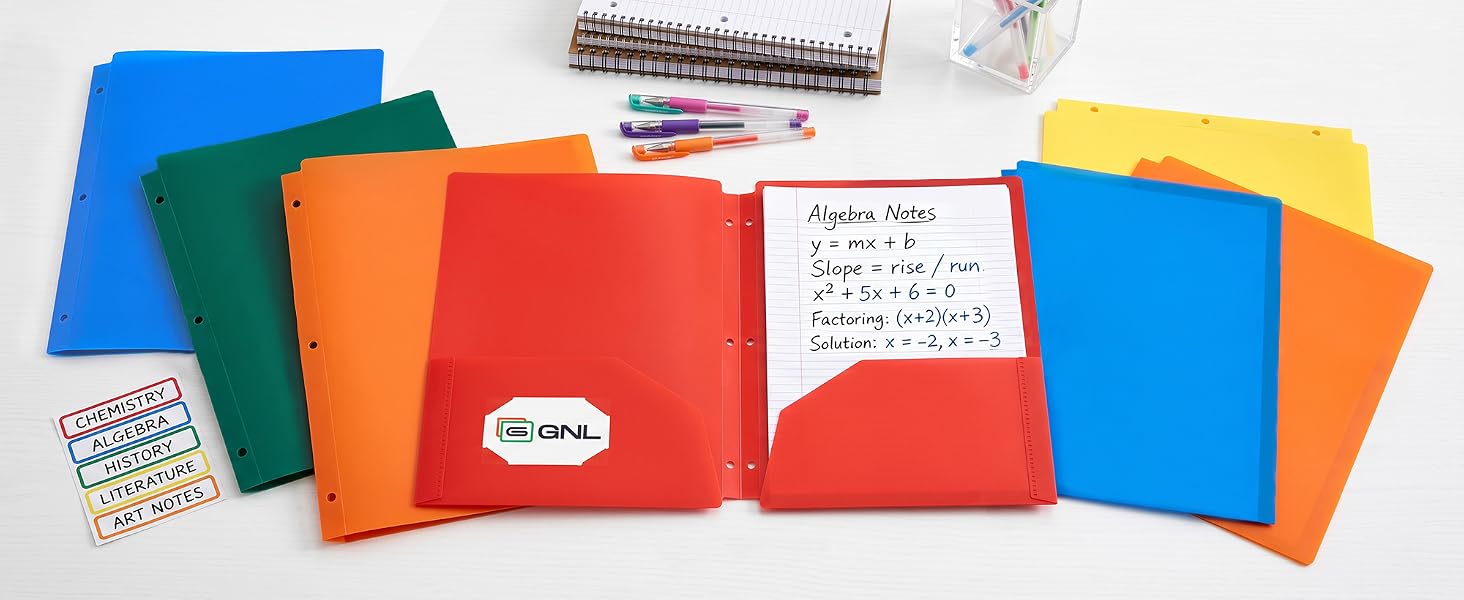 Algebra Notes
y = mx + b
Slope = rise / run.
x² + 5x + 6 = 0
Factoring: (x+2)(x+3)
Solution: x = -2, x = -3
G GNL
CHEMISTRY
ALGEBRA
HISTORY
LITERATURE
ART NOTES